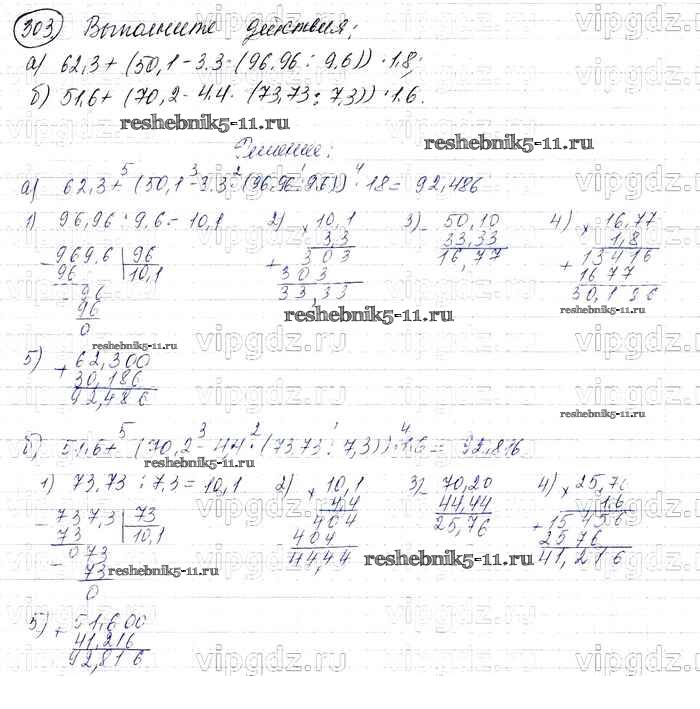 303) Выполните действия:
а) 62,3 + (50,1 - 3,3 · (96,96 : 9,6)) · 1,8;
б) 51,6 + (70,2 - 4,4 · (73,73 : 7,3)) · 1,6.
reshebnik5-11.ru reshebnik5-11.ru
Решение:
а) 62,3 +⁵ (50,1 -³ 3,3 ·² (96,96 :¹ 9,6)) ·⁴ 1,8 = 92,486
1) 96,96 : 9,6 = 10,1 2) × 10,1 3) - 50,10 4) × 16,77
- 969,6 | 96 3,3 33,33 1,8
96 | 10,1 + 303 16,77 + 13416
- 96 303 1677
96 33,33 30,186
0 reshebnik5-11.ru reshebnik5-11.ru
reshebnik5-11.ru
5) + 62,300
30,186
92,486
reshebnik5-11.ru
б) 51,6 +⁵ (70,2 -³ 4,4 ·² (73,73 :¹ 7,3)) ·⁴ 1,6 = 92,816
reshebnik5-11.ru
1) 73,73 : 7,3 = 10,1 2) × 10,1 3) - 70,20 4) × 25,76
- 737,3 | 73 4,4 44,44 1,6
73 | 10,1 404 25,76 + 15456
- 073 404 2576
73 44,44 41,216
0 reshebnik5-11.ru reshebnik5-11.ru reshebnik5-11.ru
5) + 51,600
41,216
92,816
vipgdz.ru vipgdz.ru vipgdz.ru vipgdz.ru